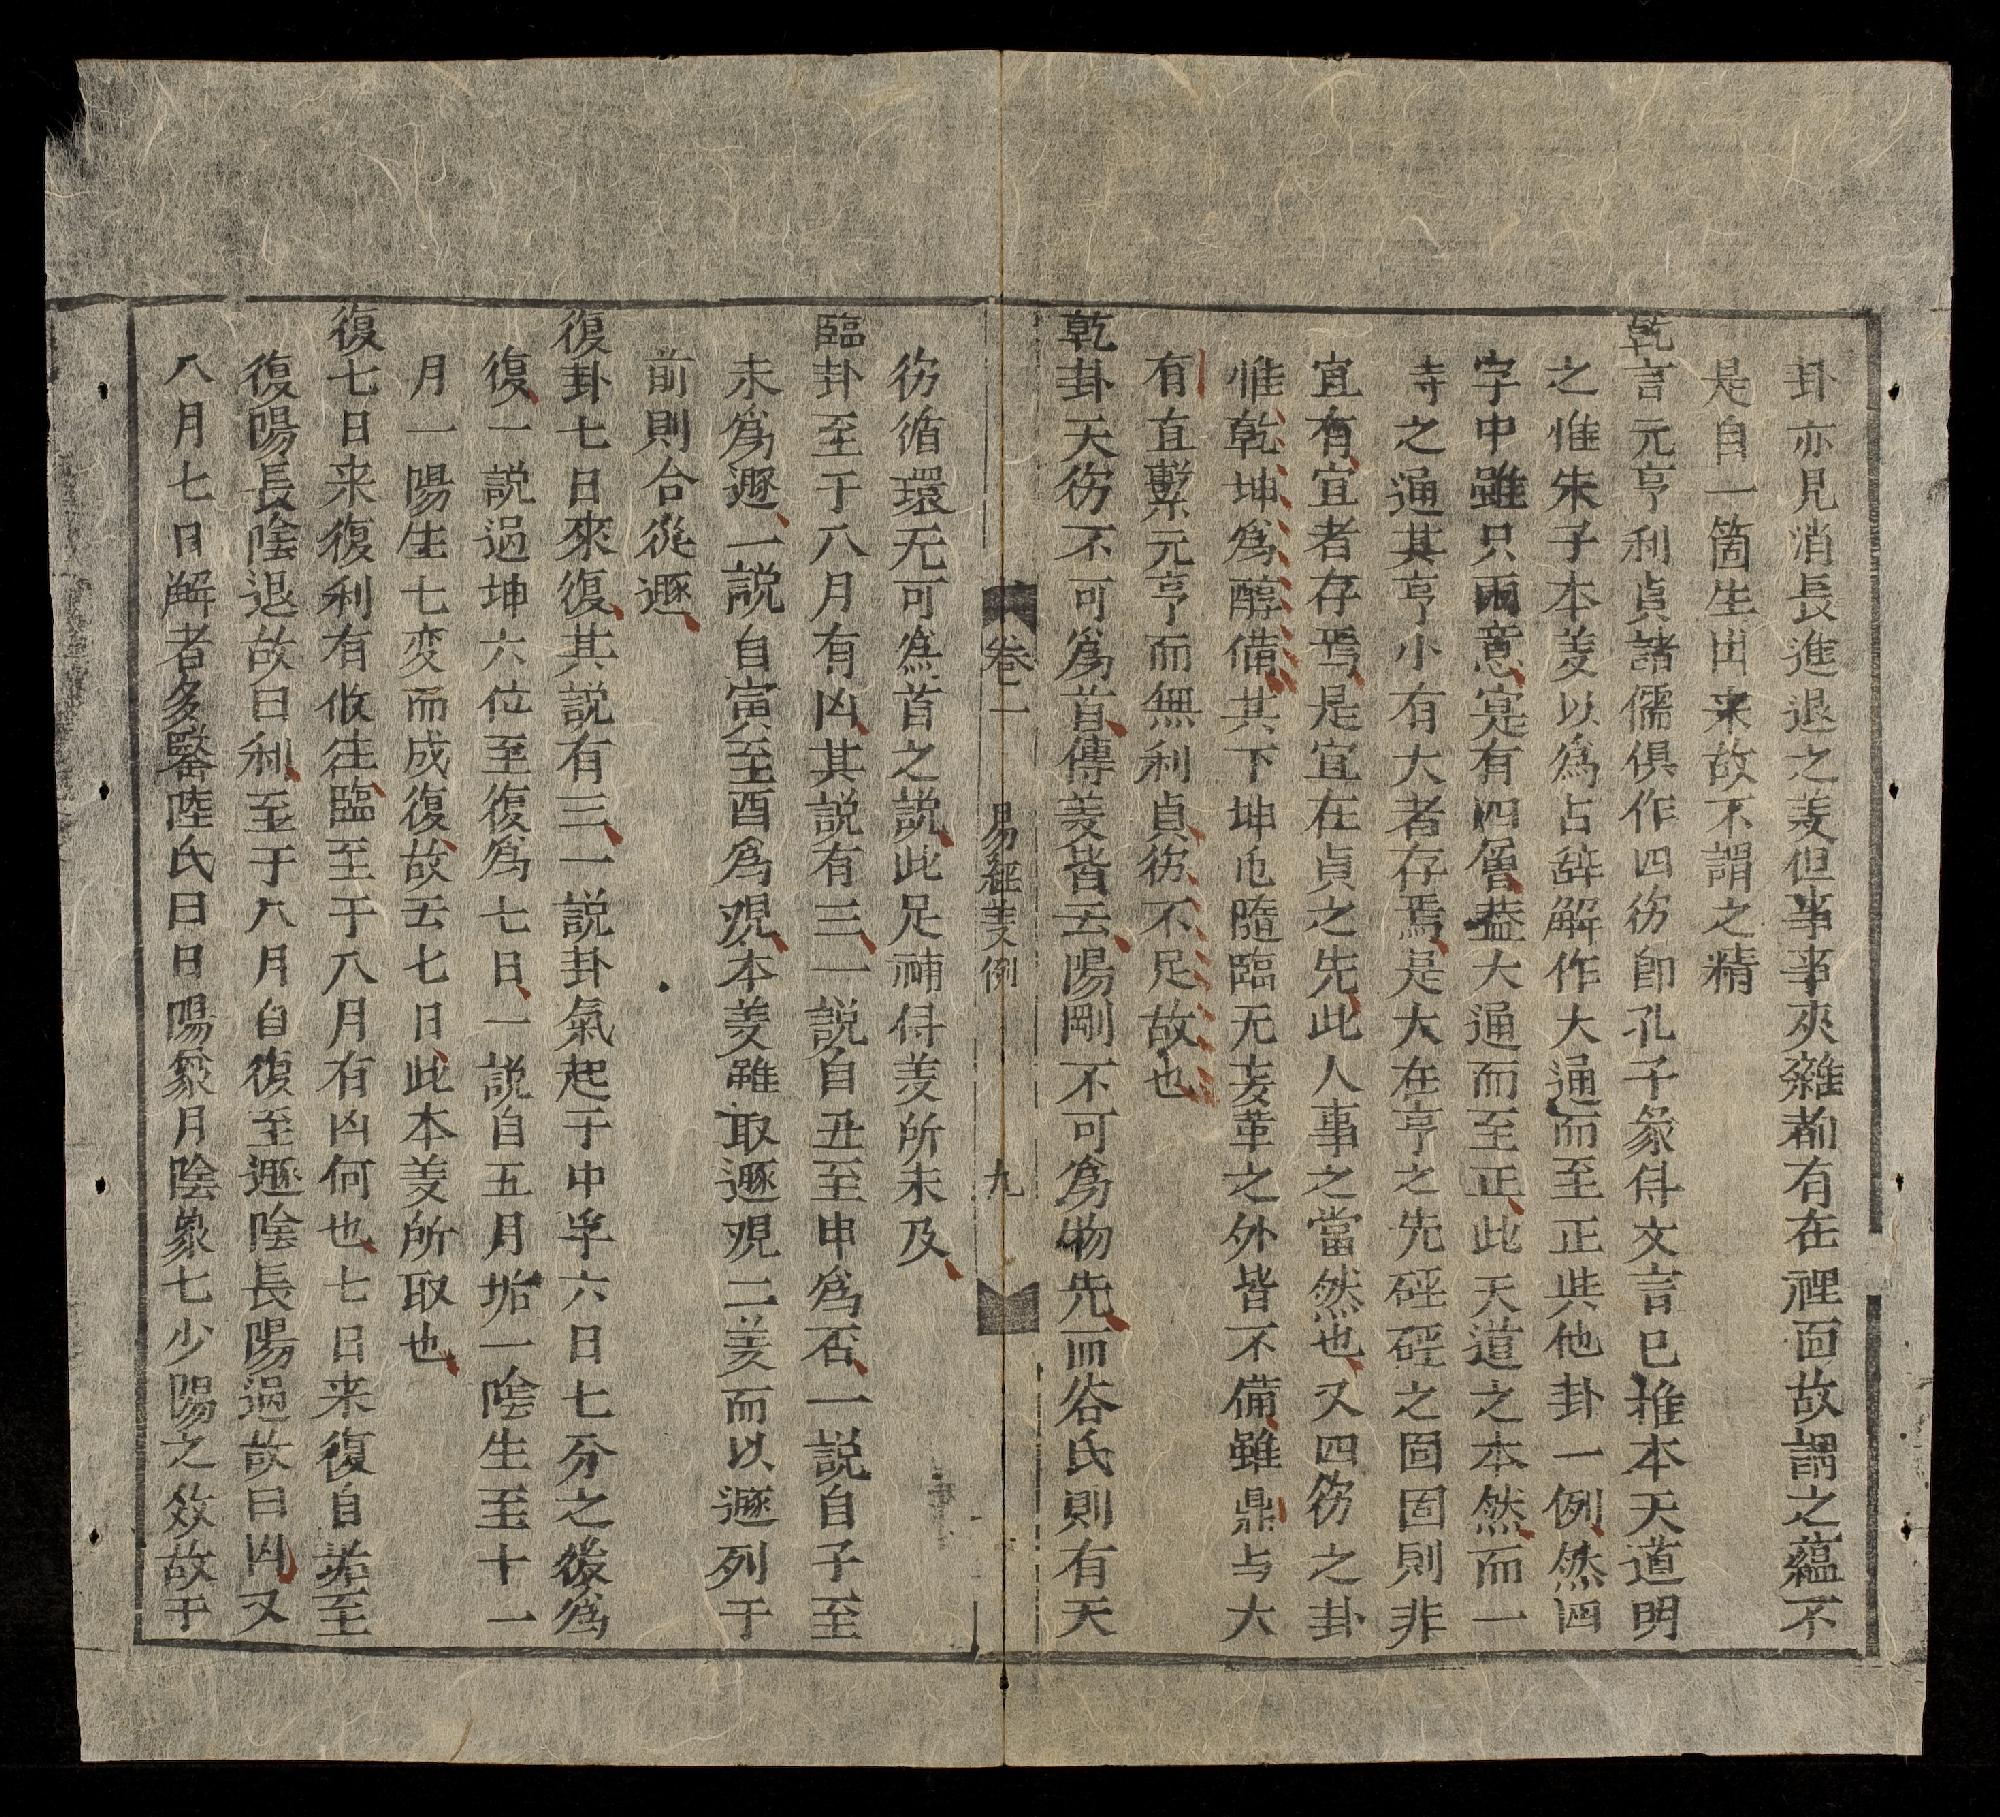 卦亦見消長進退之義但事事夾雜都有在裡面故謂之蘊不
是自一箇生出来故不謂之精
乾言元亨利貞諸儒俱作四彷即孔子彖傳文言已推本天道明
之惟朱子本義以為占辞解作大通而至正與他卦一例然四
字中雖只兩意寔有四層蓋大通而至正此天道之本然而一
時之通其亨小有大者存焉是大在亨之先硜硜之固固則非
宜有宜者存焉是宜在貞之先此人事之當然也又四彷之卦
惟乾坤為醇備其下坤屯隨臨无妄革之外皆不備雖鼎与大
有直繫元亨而無利貞彷不足故也
乾卦天彷不可為首傳義皆云陽剛不可為物先而谷氏則有天
卷二 易經義例 九
彷循環无可為首之説此足補得義所未及
臨卦至于八月有凶其説有三一説自丑至申為否一説自子至
未為遯一説自寅至酉為覌本義雖取遯覌二義而以遯列于
前則合從遯
復卦七日來復其説有三一説卦氣起于中孚六日七分之後為
復一説過坤六位至復為七日一説自五月垢一陰生至十一
月一陽生七変而成復故云七日此本義所取也
復七日来復利有攸往臨至于八月有凶何也七日来復自姤至
復陽長陰退故曰利至于八月自復至遯陰長陽過故曰凶又
八月七日解者多鑿陸氏曰日陽象月陰象七少陽之效故于